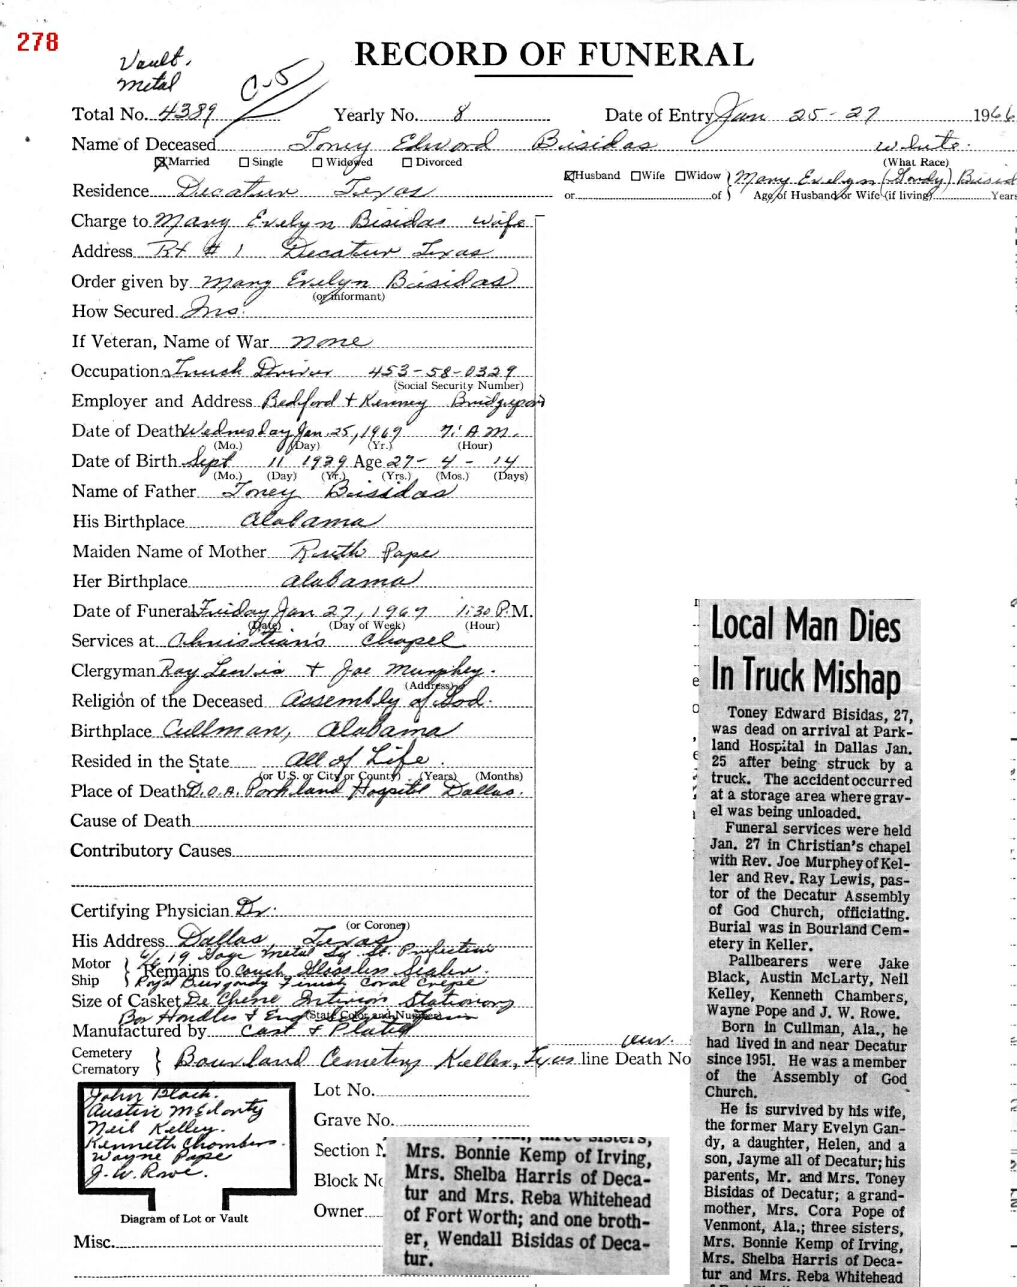 278
RECORD OF FUNERAL
Vault.
Metal
C-5
Total No. 4389 Yearly No. 8 Date of Entry Jan 25-27 1966
Name of Deceased Toney Edward Bisidas white.
(What Race)
Married Single Widowed Divorced
Husband Wife Widow Mary Evelyn (Gandy) Bisid
or of Age of Husband or Wife (if living) Years
Residence Decatur Texas
Charge to Mary Evelyn Bisidas wife
Address Rt # 1 Decatur Texas
Order given by Mary Evelyn Bisidas
(or informant)
How Secured Ins.
If Veteran, Name of War none
Occupation Truck Driver 453-58-0329
(Social Security Number)
Employer and Address Bedford + Kenney Bridgeport
Date of Death Wednesday Jan. 25, 1967 7: A.M.
(Mo.) (Day) (Yr.) (Hour)
Date of Birth Sept 11 1939 Age 27- 4 - 14
(Mo.) (Day) (Yr.) (Yrs.) (Mos.) (Days)
Name of Father Toney Bisidas
His Birthplace Alabama
Maiden Name of Mother Ruth Pape
Her Birthplace Alabama
Date of Funeral Friday Jan 27, 1967 1:30 P.M.
(Date) (Day of Week) (Hour)
Services at Christian's Chapel
Clergyman Ray Lewis + Joe Murphey.
(Address)
Religion of the Deceased Assembly of God.
Birthplace Cullman, Alabama
Resided in the State All of Life.
(or U.S. or City or County) (Years) (Months)
Place of Death D.O.A. Parkland Hospital Dallas.
Cause of Death
Contributory Causes
Certifying Physician Dr.
(or Coroner)
His Address Dallas, Texas
6/6 19 Gage Metal Sq.
Motor
Ship
Remains to Couch Sealer.
Royal Burgundy Finish Coral Crepe
Size of Casket De Chene Interior Stationary
Bar Handles +
(State Color and Number)
Manufactured by Cast + Plated
Cemetery
Crematory
Bourland Cemetery Keller, Texas line Death No
John Black.
Austin McLarty
Neil Kelley.
Kenneth Chambers.
Wayne Pape
J. W. Rowe.
Diagram of Lot or Vault
Lot No.
Grave No.
Section N
Block No
Owner
Misc.
Local Man Dies
In Truck Mishap
Toney Edward Bisidas, 27,
was dead on arrival at Park-
land Hospital in Dallas Jan.
25 after being struck by a
truck. The accident occurred
at a storage area where grav-
el was being unloaded.
Funeral services were held
Jan. 27 in Christian's chapel
with Rev. Joe Murphey of Kel-
ler and Rev. Ray Lewis, pas-
tor of the Decatur Assembly
of God Church, officiating.
Burial was in Bourland Cem-
etery in Keller.
Pallbearers were Jake
Black, Austin McLarty, Neil
Kelley, Kenneth Chambers,
Wayne Pope and J. W. Rowe.
Born in Cullman, Ala., he
had lived in and near Decatur
since 1951. He was a member
of the Assembly of God
Church.
He is survived by his wife,
the former Mary Evelyn Gan-
dy, a daughter, Helen, and a
son, Jayme all of Decatur; his
parents, Mr. and Mrs. Toney
Bisidas of Decatur; a grand-
mother, Mrs. Cora Pope of
Venmont, Ala.; three sisters,
Mrs. Bonnie Kemp of Irving,
Mrs. Shelba Harris of Deca-
tur and Mrs. Reba Whitehead
three sisters,
Mrs. Bonnie Kemp of Irving,
Mrs. Shelba Harris of Deca-
tur and Mrs. Reba Whitehead
of Fort Worth; and one broth-
er, Wendall Bisidas of Deca-
tur.